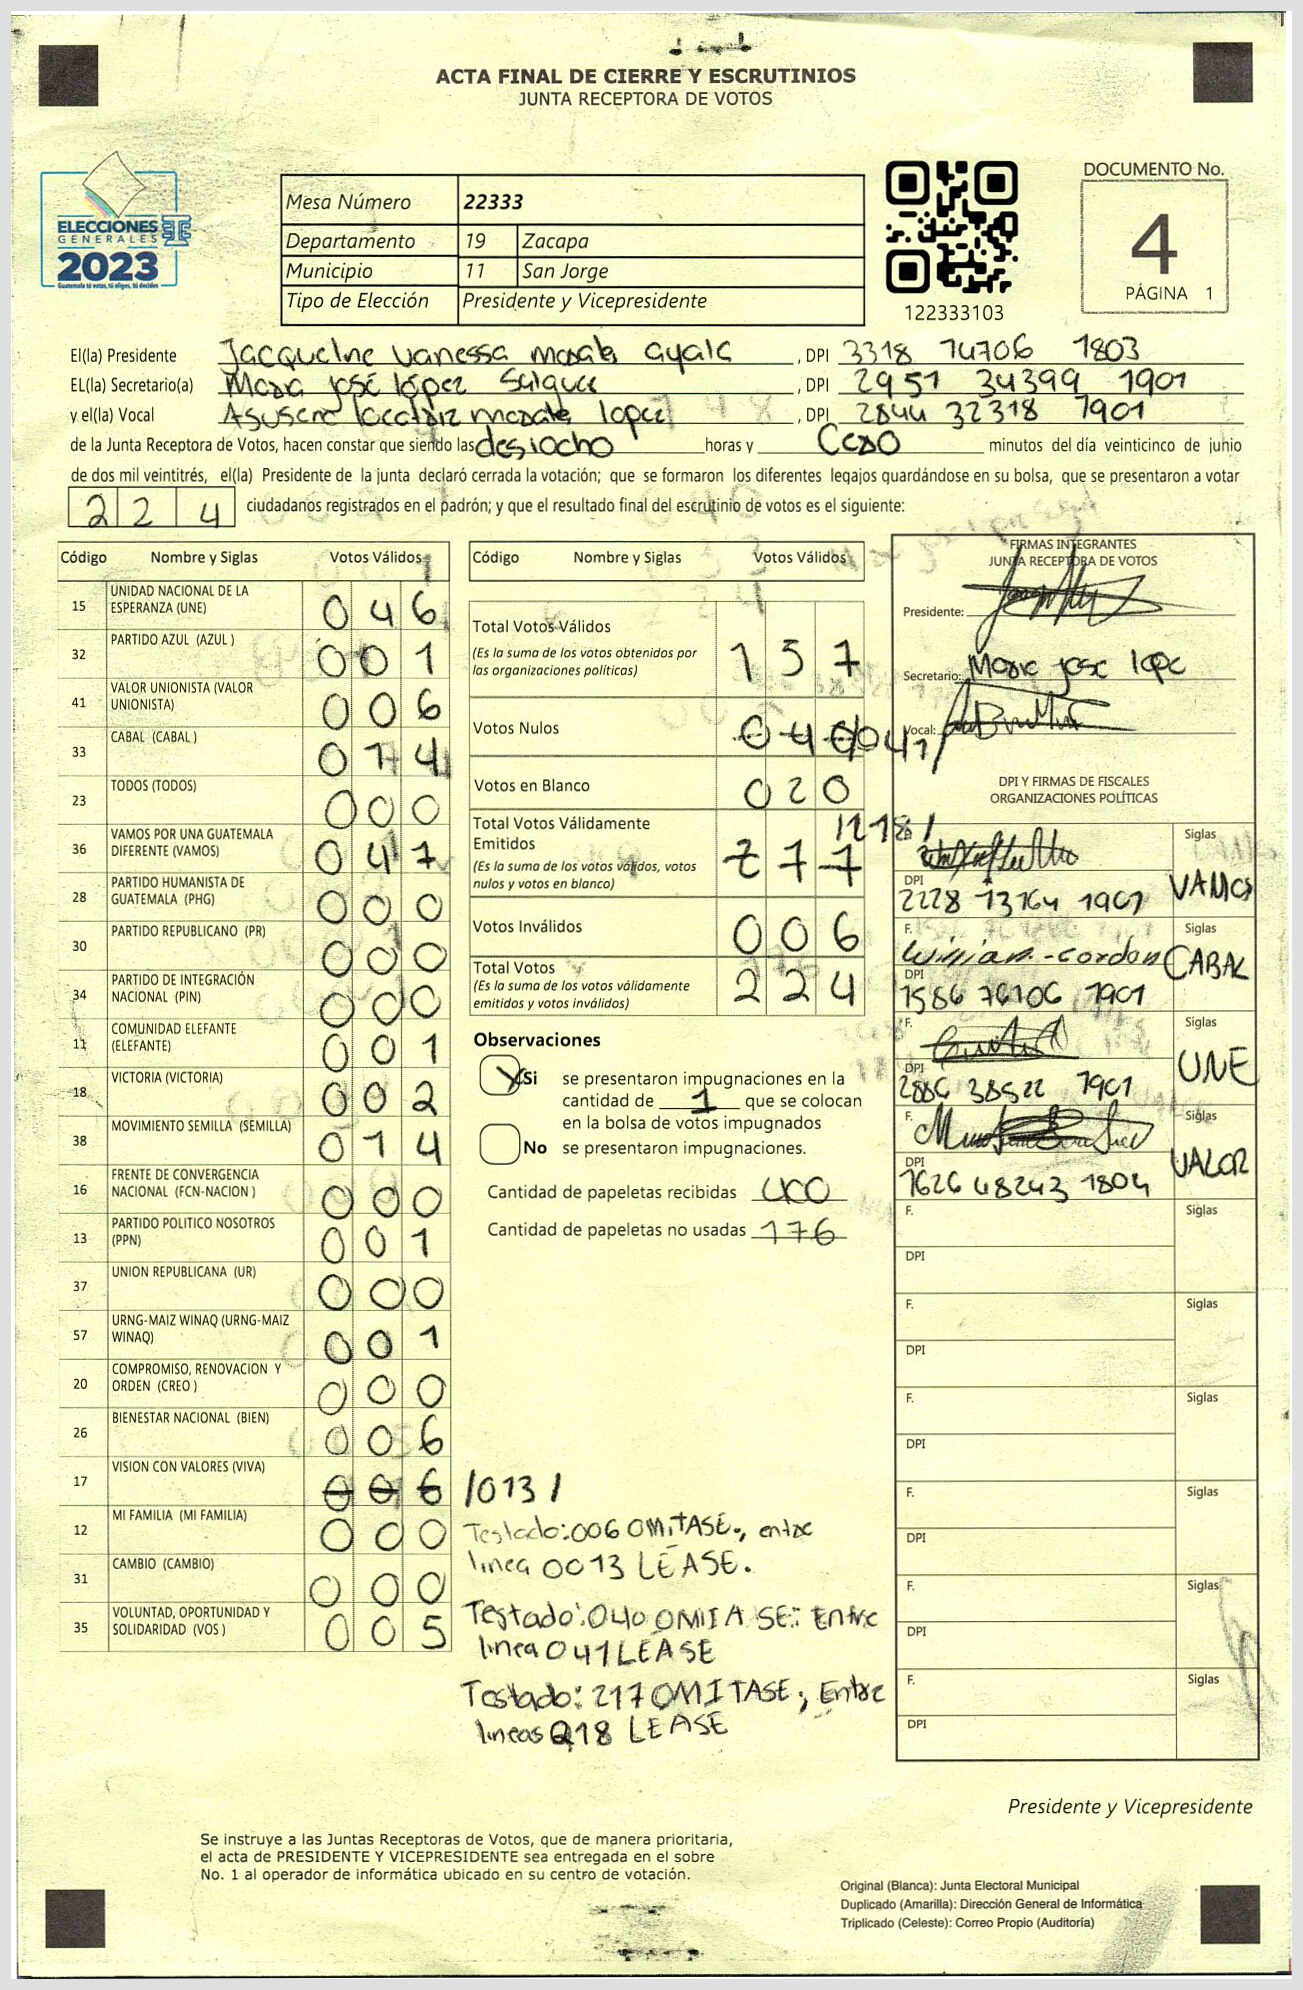 ACTA FINAL DE CIERRE Y ESCRUTINIOS
JUNTA RECEPTORA DE VOTOS
ELECCIONES
GENERALES
2023
Guatemala tú votas, tú eliges, tú decides
Mesa Número 22333
Departamento 19 Zacapa
Municipio 11 San Jorge
Tipo de Elección Presidente y Vicepresidente
122333103
DOCUMENTO No.
4
PÁGINA 1
El(la) Presidente Jacqueline vanessa morales ayala , DPI 3318 74706 1803
EL(la) Secretario(a) Maria josé lópez , DPI 2951 34399 1901
y el(la) Vocal morales lopez , DPI 2844 32318 1901
de la Junta Receptora de Votos, hacen constar que siendo las desiocho horas y Cero minutos del día veinticinco de junio
de dos mil veintitrés, el(la) Presidente de la junta declaró cerrada la votación; que se formaron los diferentes legajos guardándose en su bolsa, que se presentaron a votar
224 ciudadanos registrados en el padrón; y que el resultado final del escrutinio de votos es el siguiente:
Código Nombre y Siglas Votos Válidos
15 UNIDAD NACIONAL DE LA ESPERANZA (UNE) 046
32 PARTIDO AZUL (AZUL ) 001
41 VALOR UNIONISTA (VALOR UNIONISTA) 006
33 CABAL (CABAL ) 014
23 TODOS (TODOS) 000
36 VAMOS POR UNA GUATEMALA DIFERENTE (VAMOS) 047
28 PARTIDO HUMANISTA DE GUATEMALA (PHG) 000
30 PARTIDO REPUBLICANO (PR) 000
34 PARTIDO DE INTEGRACIÓN NACIONAL (PIN) 000
11 COMUNIDAD ELEFANTE (ELEFANTE) 001
18 VICTORIA (VICTORIA) 002
38 MOVIMIENTO SEMILLA (SEMILLA) 014
16 FRENTE DE CONVERGENCIA NACIONAL (FCN-NACION ) 000
13 PARTIDO POLITICO NOSOTROS (PPN) 001
37 UNION REPUBLICANA (UR) 000
57 URNG-MAIZ WINAQ (URNG-MAIZ WINAQ) 001
20 COMPROMISO, RENOVACION Y ORDEN (CREO ) 000
26 BIENESTAR NACIONAL (BIEN) 006
17 VISION CON VALORES (VIVA) 006 /013/
12 MI FAMILIA (MI FAMILIA) 000
31 CAMBIO (CAMBIO) 000
35 VOLUNTAD, OPORTUNIDAD Y SOLIDARIDAD (VOS ) 005
Código Nombre y Siglas Votos Válidos
Total Votos Válidos 157
(Es la suma de los votos obtenidos por
las organizaciones políticas)
Votos Nulos 040 /041/
Votos en Blanco 020
Total Votos Válidamente
Emitidos 217 /218/
(Es la suma de los votos válidos, votos
nulos y votos en blanco)
Votos Inválidos 006
Total Votos 224
(Es la suma de los votos válidamente
emitidos y votos inválidos)
Observaciones
X Si se presentaron impugnaciones en la
cantidad de 1 que se colocan
en la bolsa de votos impugnados
No se presentaron impugnaciones.
Cantidad de papeletas recibidas 400
Cantidad de papeletas no usadas 176
Testado: 006 OMITASE., entre
linea 0013 LEASE.
Testado: 040 OMITASE: Entre
linea 041 LEASE
Testado: 217 OMITASE; Entre
lineas 218 LEASE
FIRMAS INTEGRANTES
JUNTA RECEPTORA DE VOTOS
Presidente:
Secretario: Maria jose lope
Vocal:
DPI Y FIRMAS DE FISCALES
ORGANIZACIONES POLÍTICAS
Siglas VAMOS
DPI 2228 13164 1901
F. Willian - cordon Siglas CABAL
DPI 1586 76106 1901
F. Siglas UNE
DPI 2886 38522 1901
F. Siglas VALOR
DPI 1626 48243 1804
F. Siglas
DPI
F. Siglas
DPI
F. Siglas
DPI
F. Siglas
DPI
F. Siglas
DPI
F. Siglas
DPI
Presidente y Vicepresidente
Se instruye a las Juntas Receptoras de Votos, que de manera prioritaria,
el acta de PRESIDENTE Y VICEPRESIDENTE sea entregada en el sobre
No. 1 al operador de informática ubicado en su centro de votación.
Original (Blanca): Junta Electoral Municipal
Duplicado (Amarilla): Dirección General de Informática
Triplicado (Celeste): Correo Propio (Auditoría)